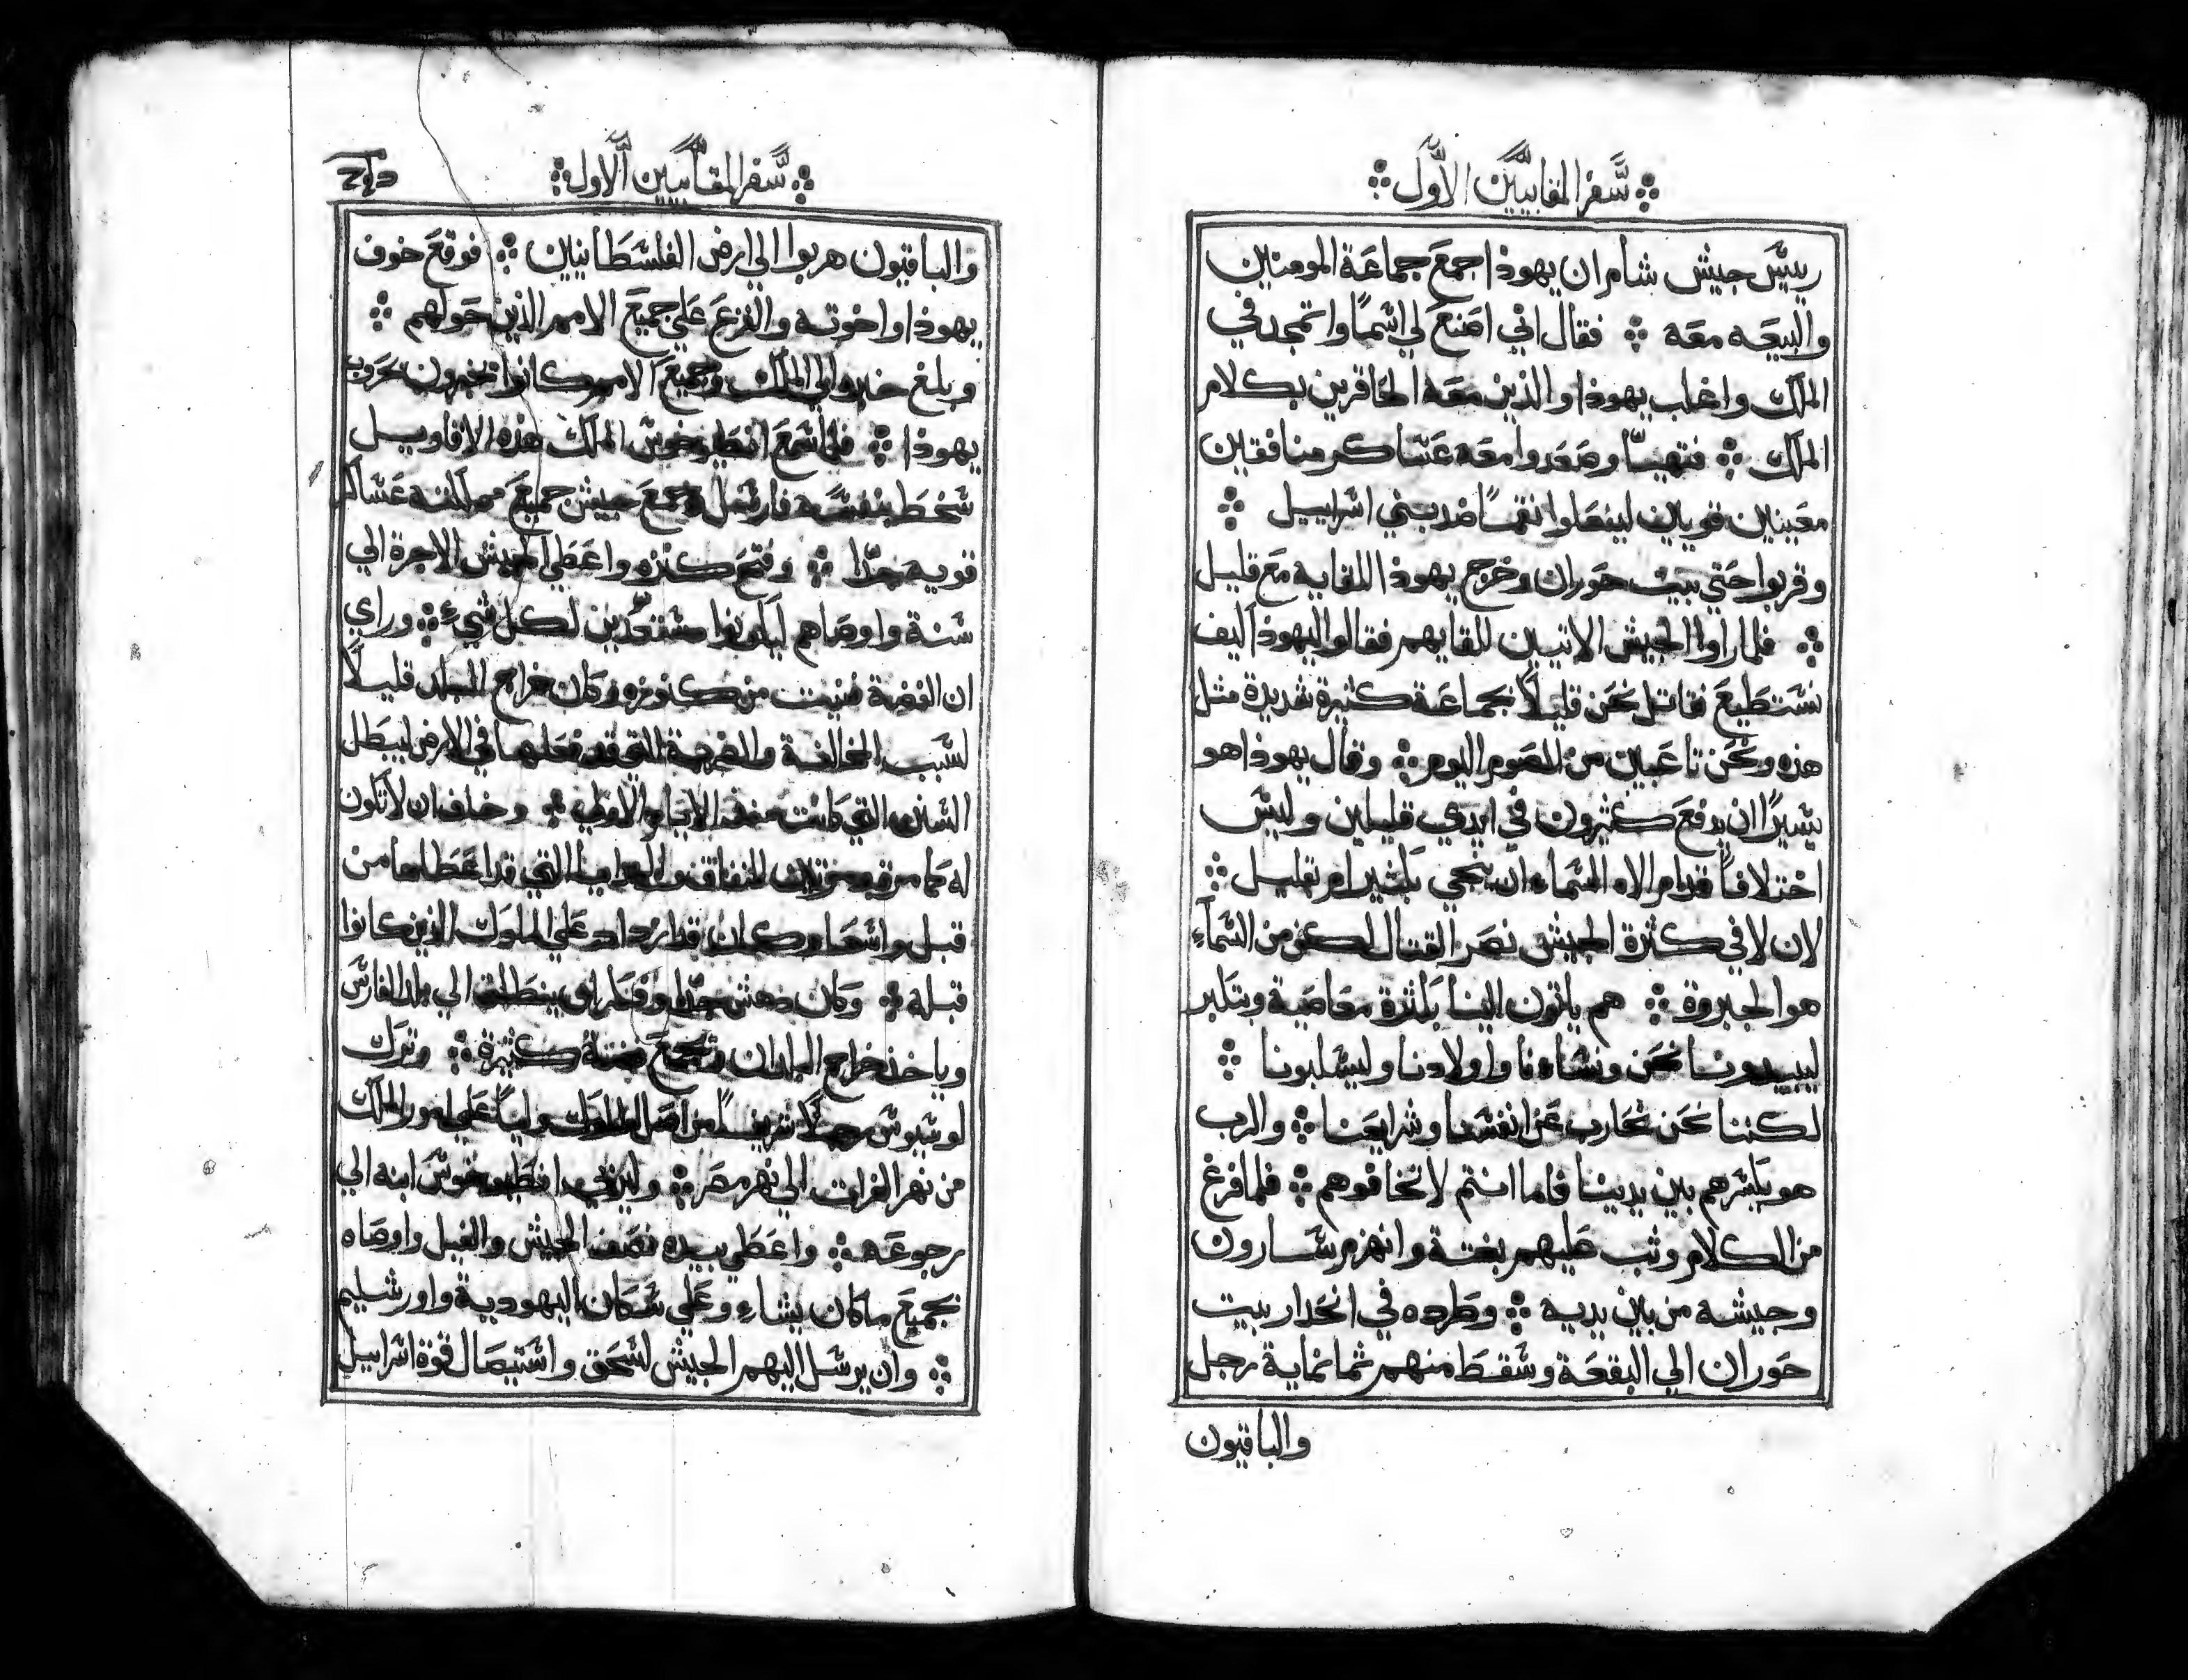 سفر المقابيين الاول
رييس جيش شام ان يهوذا جمع جماعة المومنين
والبيعه معه ❖ فقال اني اصنع لي اسمًا واتمجد في
الملك واغلب يهوذا والذين معه الحاقرين بكلام
الملك ❖ فتهيا وصعدوا معه عساكر منافقين
معينين قويين ليفعلوا انتقمًا ضد بني اسراييل ❖
وقربوا حتي بيت حوران وخرج يهوذا للقايه مع قليل
❖ فلما راوا الجيش الاتيين للقايهم فقالوا ليهوذا كيف
نستطيع نقاتل نحن قليلًا بجماعة كثيرة شديدة مثل
هذه ونحن تاعبين من الصوم اليوم ❖ وقال يهوذا هو
يسيرًا ان يدفع كثيرون في ايدي قليلين وليس
اختلافًا قدام الاه السماء ان ينجي بكثير ام بقليل ❖
لان لا في كثرة الجيش نصر القتال لكن من السماء
هو الجبروة ❖ هم ياتون الينا بكثرة معاصية وبتكبر
ليبيدونا نحن ونساءنا واولادنا وليسلبونا ❖
لكننا نحن نحارب عن انفسنا وشرايعنا ❖ والرب
هو يكسرهم بين يدينا فاما انتم لا تخافوهم ❖ فلما فرغ
من الكلام وثب عليهم بغتة وانهزم سارون
وجيشه من بين يديه ❖ وطرده في انحدار بيت
حوران الي البقعة وسقط منهم ثمانماية رجل
والباقيون
سفر المقابيين الاول
والباقيون هربوا الي ارض الفلسطانيين ❖ فوقع خوف
يهوذا واخوته والفزع علي جميع الامم الذين حولهم ❖
وبلغ خبره الي الملك وجميع الامم كانوا يخبرون بحروب
يهوذا ❖ فلما سمع انطيوخوس الملك هذه الاقاويل
سخط بنفسه فارسل وجمع جيش جميع مملكته عساكر
قويه جدًا ❖ وفتح كنزه واعطي الجيش الاجرة الي
سنة واوصاهم ليكونوا مستعدين لكل شيء ❖ وراي
ان الفضة فنيت من كنوزه وكان خراج البلد قليلًا
لسبب المخالفة والضربة التي قد فعلها في الارض ليبطل
السنن التي كانت منذ الايام الاولي ❖ وخاف ان لا تكون
له كما مرة ومرتين للنفاق والعطايا التي قد اعطاها من
قبل واسعا وكان قد ازداد علي الملوك الذين كانوا
قبله ❖ وكان دهش جدًا وفكر ان ينطلق الي بلد الفارس
وياخذ خراج البلدان ويجمع فضة كثيرة ❖ وترك
لوسيوس رجلًا شريفًا من اصل الملوك وليًا علي امور الملك
من نهر الفرات الي نهر مصر ❖ وليربي انطيوخوس ابنه الي
رجوعه ❖ واعطي بيده نصف الجيش والفيل واوصاه
بجميع ما كان يشاء وعلي سكان اليهودية واورشليم
❖ وان يرسل اليهم الجيش لسحق واستيصال قوة اسراييل